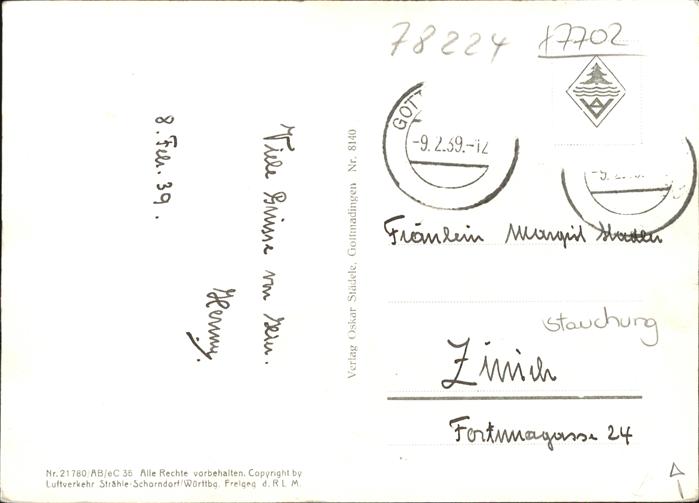 78224
17702
GOTT
-9.2.39.-12
-9.2.
8. Febr. 39.
Viele Grüsse von
Henny.
Verlag Oskar Städele, Gottmadingen Nr. 8140
Fräulein Margrit
Stauchung
Zürich
Fortunagasse 24
Nr. 21780/AB/eC 36. Alle Rechte vorbehalten. Copyright by
Luftverkehr Strähle-Schorndorf/Württbg. Freigeg. d. R L M.